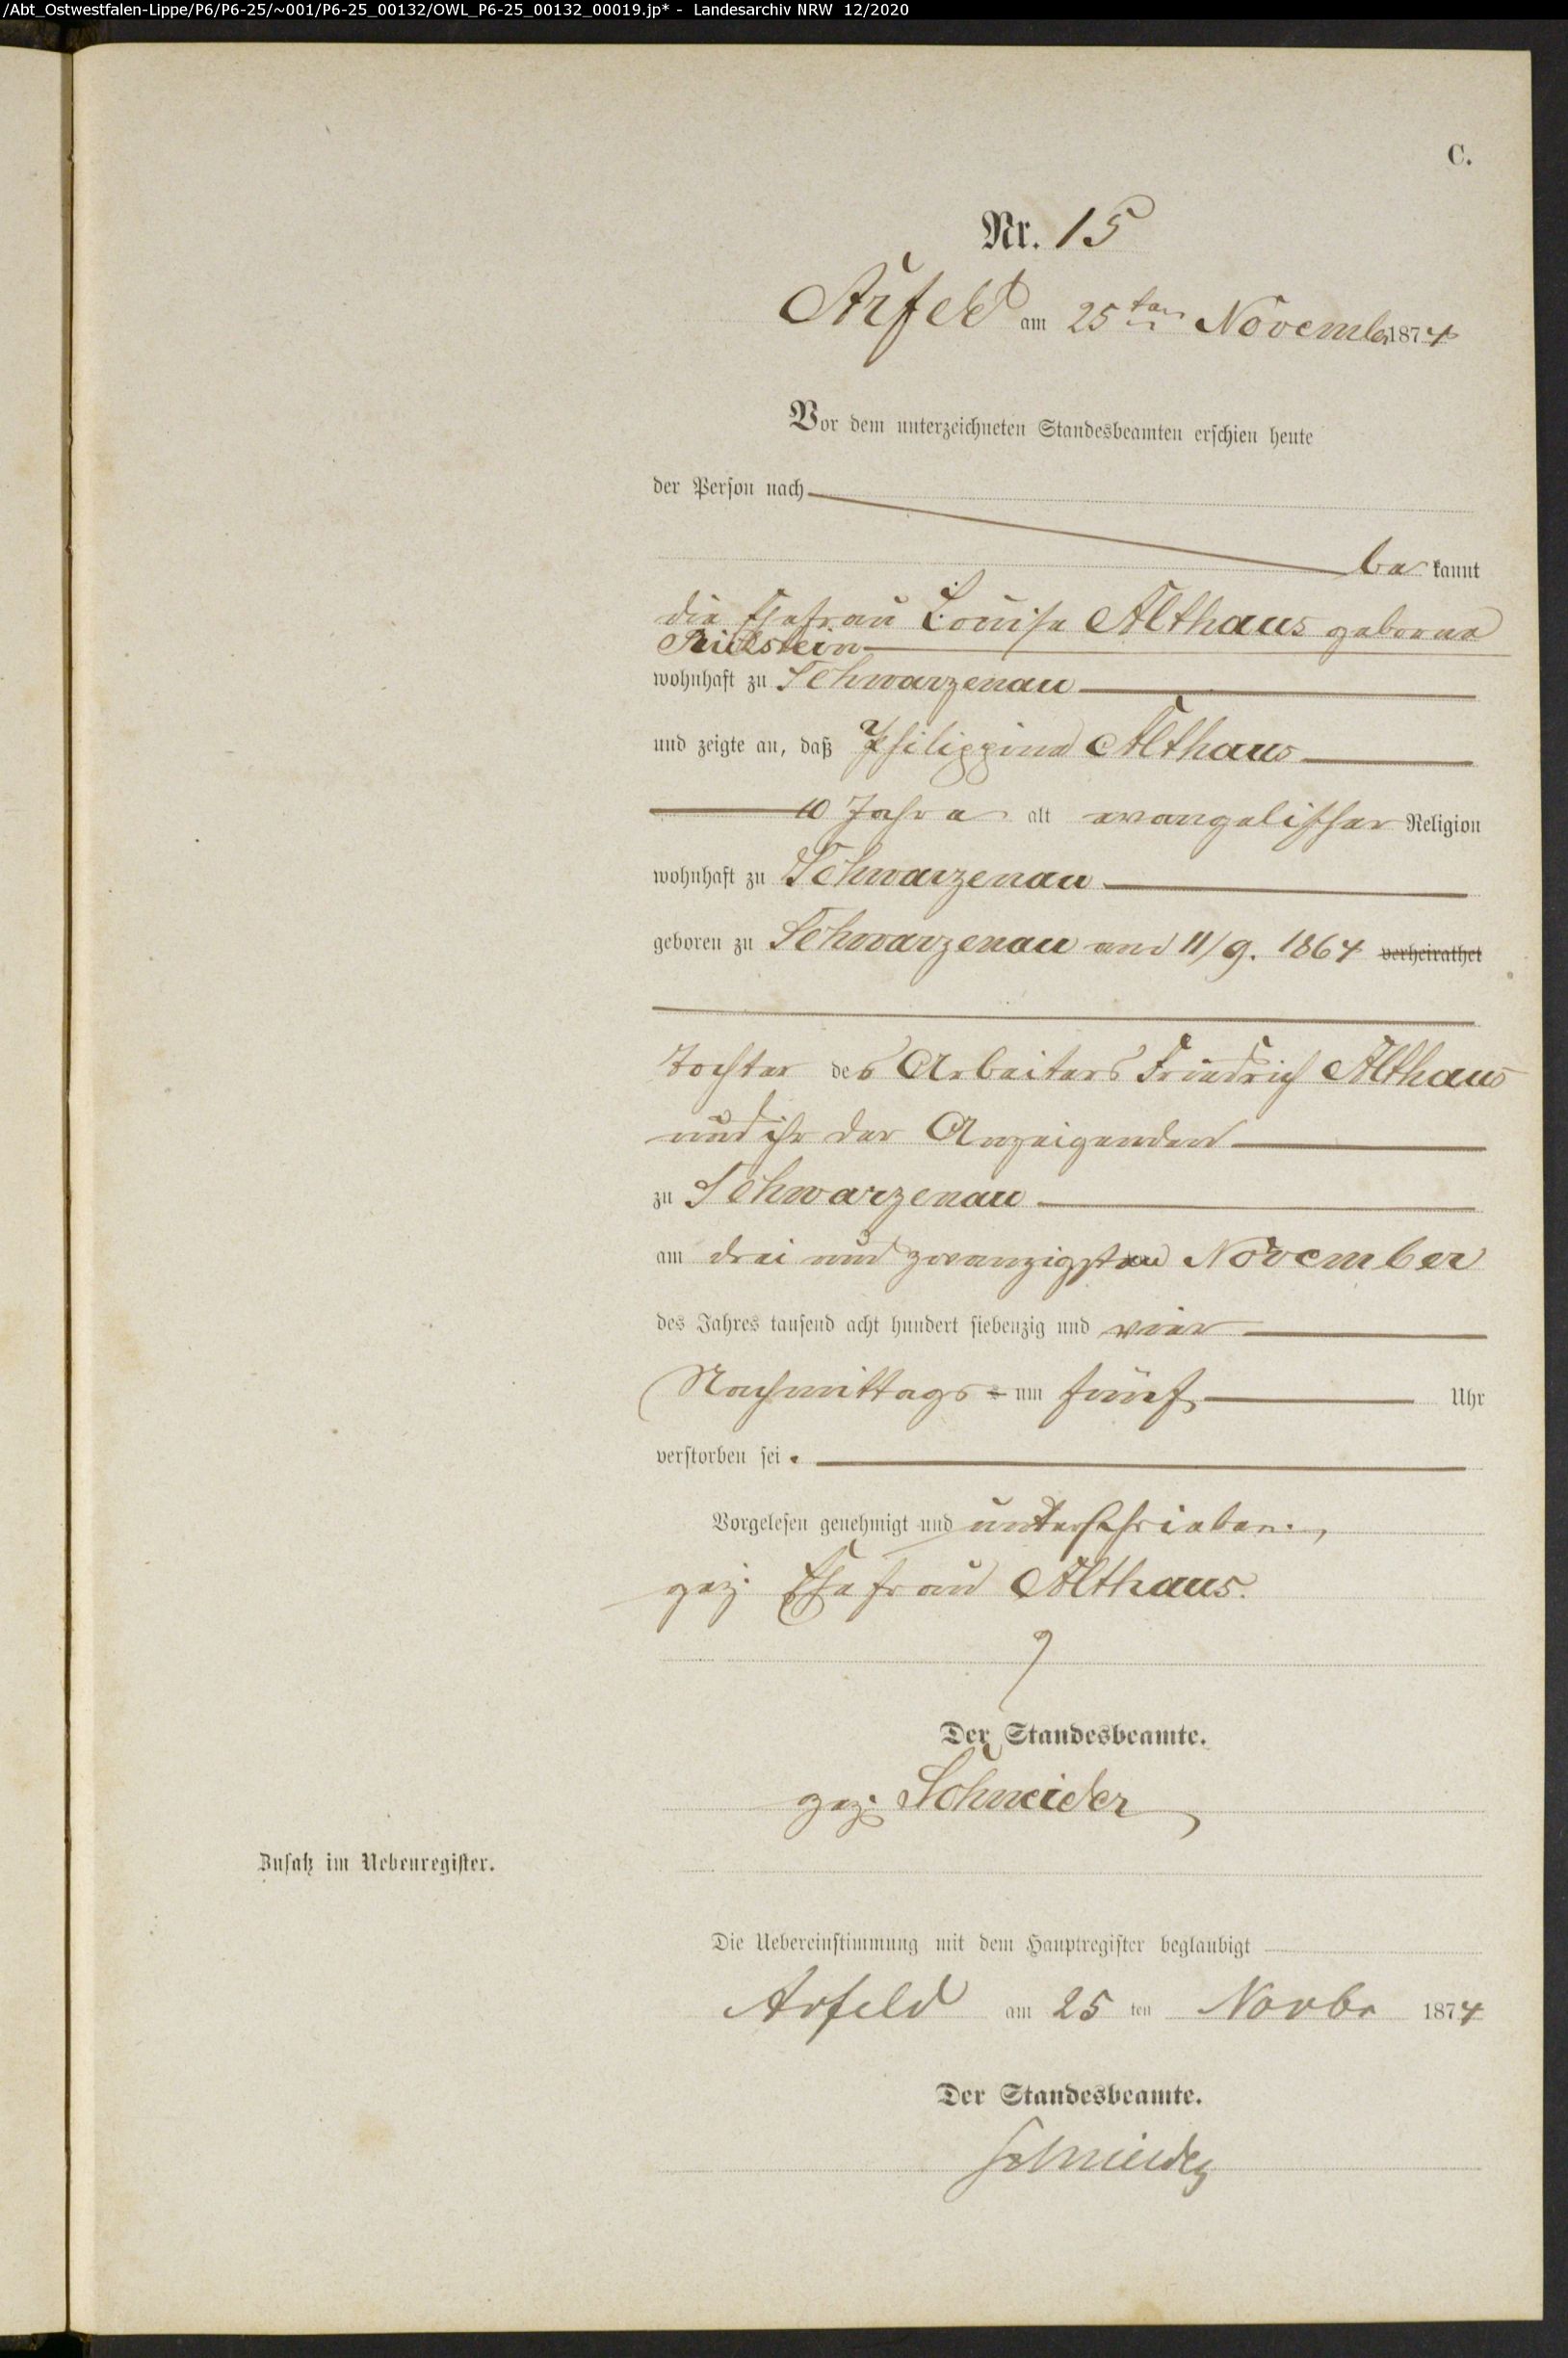 /Abt_Ostwestfalen-Lippe/P6/P6-25/~001/P6-25_00132/OWL_P6-25_00132_00019.jp* - Landesarchiv NRW 12/2020
C.
Nr. 15
Arfeld am 25ten November 1874
Vor dem unterzeichneten Standesbeamten erschien heute
der Person nach
be kannt
die Ehefrau Louise Althaus geborne
wohnhaft zu Schwarzenau
und zeigte an, daß Philippine Althaus
10 Jahre alt evangelischer Religion
wohnhaft zu Schwarzenau
geboren zu Schwarzenau am 11/9. 1864 verheirathet
Tochter des Arbeiters Friedrich Althaus
und ihr der Anzeigenden
zu Schwarzenau
am drei und zwanzigsten November
des Jahres tausend acht hundert siebenzig und vier
Nachmittags um fünf Uhr
verstorben sei.
Vorgelesen genehmigt und unterschrieben.
gez. Ehefrau Althaus.
Der Standesbeamte.
gez. Schneider
Zusatz im Nebenregister.
Die Uebereinstimmung mit dem Hauptregister beglaubigt
Arfeld am 25 ten Novbr 1874
Der Standesbeamte.
Schneider